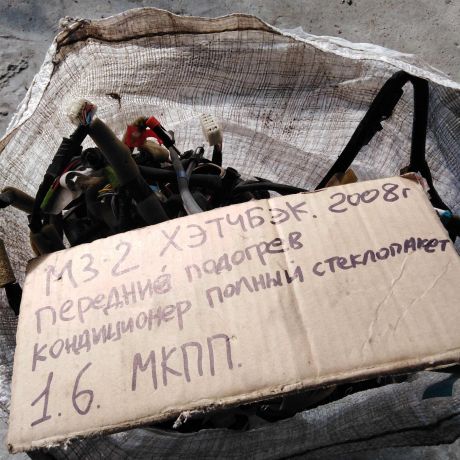 МЗ-2 ХЭТЧБЭК. 2008г
ПЕРЕДНИЕ ПОДОГРЕВ
КОНДИЦИОНЕР ПОЛНЫЙ СТЕКЛОПАКЕТ
1.6. МКПП.